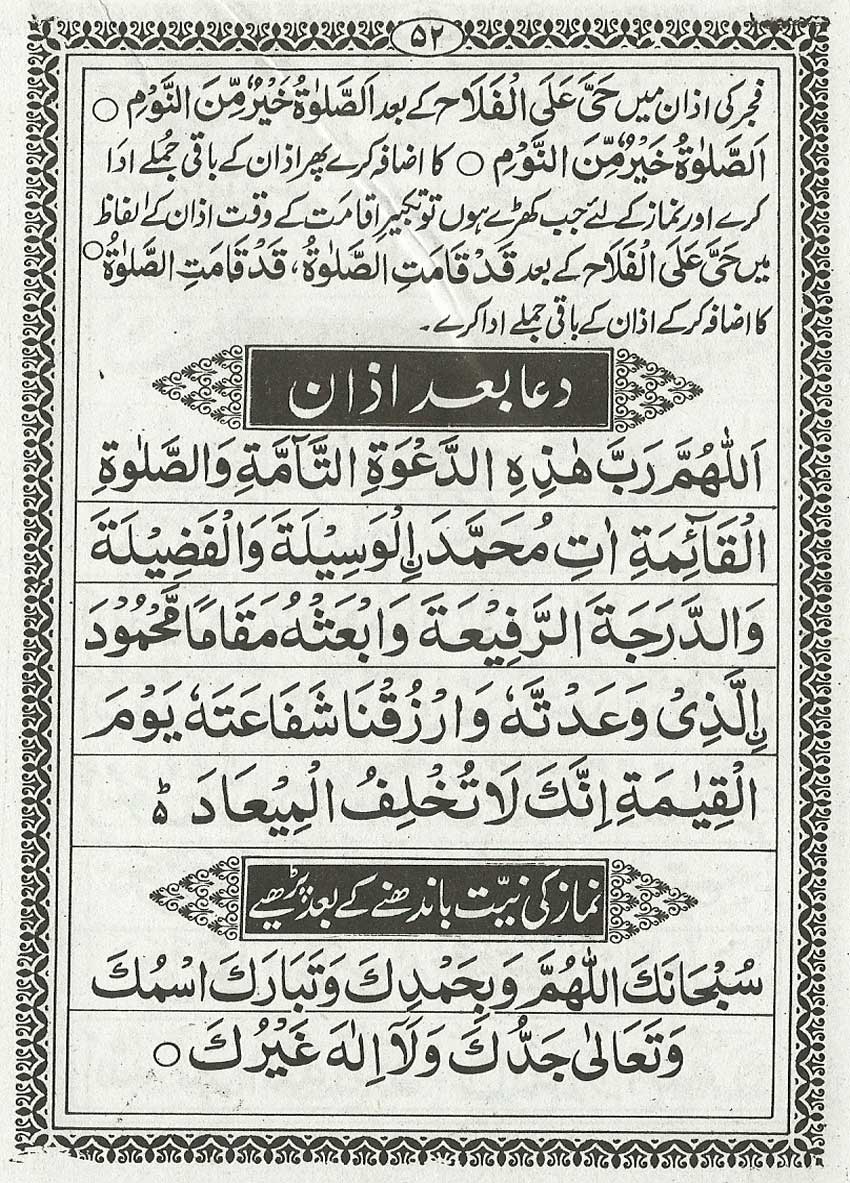 ۵۲
فجر کی اذان میں حَیَّ عَلَی الْفَلَاح کے بعد اَلصَّلٰوةُ خَیْرٌ مِّنَ النَّوْمِ ○
اَلصَّلٰوةُ خَیْرٌ مِّنَ النَّوْمِ ○ کا اضافہ کرے پھر اذان کے باقی جُملے ادا
کرے اور نماز کے لئے جب کھڑے ہوں تو تکبیرِ اقامت کے وقت اذان کے الفاظ
میں حَیَّ عَلَی الْفَلَاح کے بعد قَدْ قَامَتِ الصَّلٰوةُ، قَدْ قَامَتِ الصَّلٰوةُ ○
کا اضافہ کرکے اذان کے باقی جملے ادا کرے۔
دعا بعد اذان
اَللّٰهُمَّ رَبَّ هٰذِهِ الدَّعْوَةِ التَّآمَّةِ وَالصَّلٰوةِ
الْقَآئِمَةِ اٰتِ مُحَمَّدَ نِ الْوَسِیْلَةَ وَالْفَضِیْلَةَ
وَالدَّرَجَةَ الرَّفِیْعَةَ وَابْعَثْهُ مَقَامًا مَّحْمُوْدَ
نِ الَّذِیْ وَعَدْتَّهٗ وَارْزُقْنَا شَفَاعَتَهٗ یَوْمَ
الْقِیٰمَةِ اِنَّكَ لَا تُخْلِفُ الْمِیْعَادَ ۵ؕ
نماز کی نیّت باندھنے کے بعد پڑھیے
سُبْحَانَكَ اللّٰهُمَّ وَبِحَمْدِكَ وَتَبَارَكَ اسْمُكَ
وَتَعَالٰی جَدُّكَ وَلَآ اِلٰهَ غَیْرُكَ ○